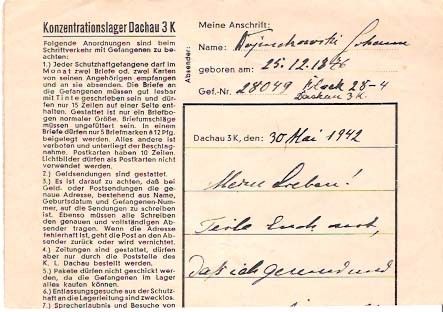 Konzentrationslager Dachau 3 K
Folgende Anordnungen sind beim
Schriftverkehr mit Gefangenen zu be-
achten:
1.) Jeder Schutzhaftgefangene darf im
Monat zwei Briefe od. zwei Karten
von seinen Angehörigen empfangen
und an sie absenden. Die Briefe an
die Gefangenen müssen gut lesbar
mit Tinte geschrieben sein und dür-
fen nur 15 Zeilen auf einer Seite ent-
halten. Gestattet ist nur ein Briefbo-
gen normaler Größe. Briefumschläge
müssen ungefüttert sein. In einem
Briefe dürfen nur 5 Briefmarken à 12 Pfg.
beigelegt werden. Alles andere ist
verboten und unterliegt der Beschlag-
nahme. Postkarten haben 10 Zeilen.
Lichtbilder dürfen als Postkarten nicht
verwendet werden.
2.) Geldsendungen sind gestattet.
3.) Es ist darauf zu achten, daß bei
Geld- oder Postsendungen die ge-
naue Adresse, bestehend aus Name,
Geburtsdatum und Gefangenen-Num-
mer, auf die Sendungen zu schreiben
ist. Ebenso müssen alle Schreiben
den genauen und vollständigen Ab-
sender tragen. Wenn die Adresse
fehlerhaft ist, geht die Post an den Ab-
sender zurück oder wird vernichtet.
4.) Zeitungen sind gestattet, dürfen
aber nur durch die Poststelle des
K. L. Dachau bestellt werden.
5.) Pakete dürfen nicht geschickt wer-
den, da die Gefangenen im Lager
alles kaufen können.
6.) Entlassungsgesuche aus der Schutz-
haft an die Lagerleitung sind zwecklos.
7.) Sprecherlaubnis und Besuche von
Absender:
Meine Anschrift:
Name:
geboren am: 25.12.18
Gef.-Nr. 28049 Block 28-4
Dachau 3 K.
Dachau 3 K, den: 30 Mai 1942
Meine Lieben!
Teile Euch mit,
daß ich gesund und